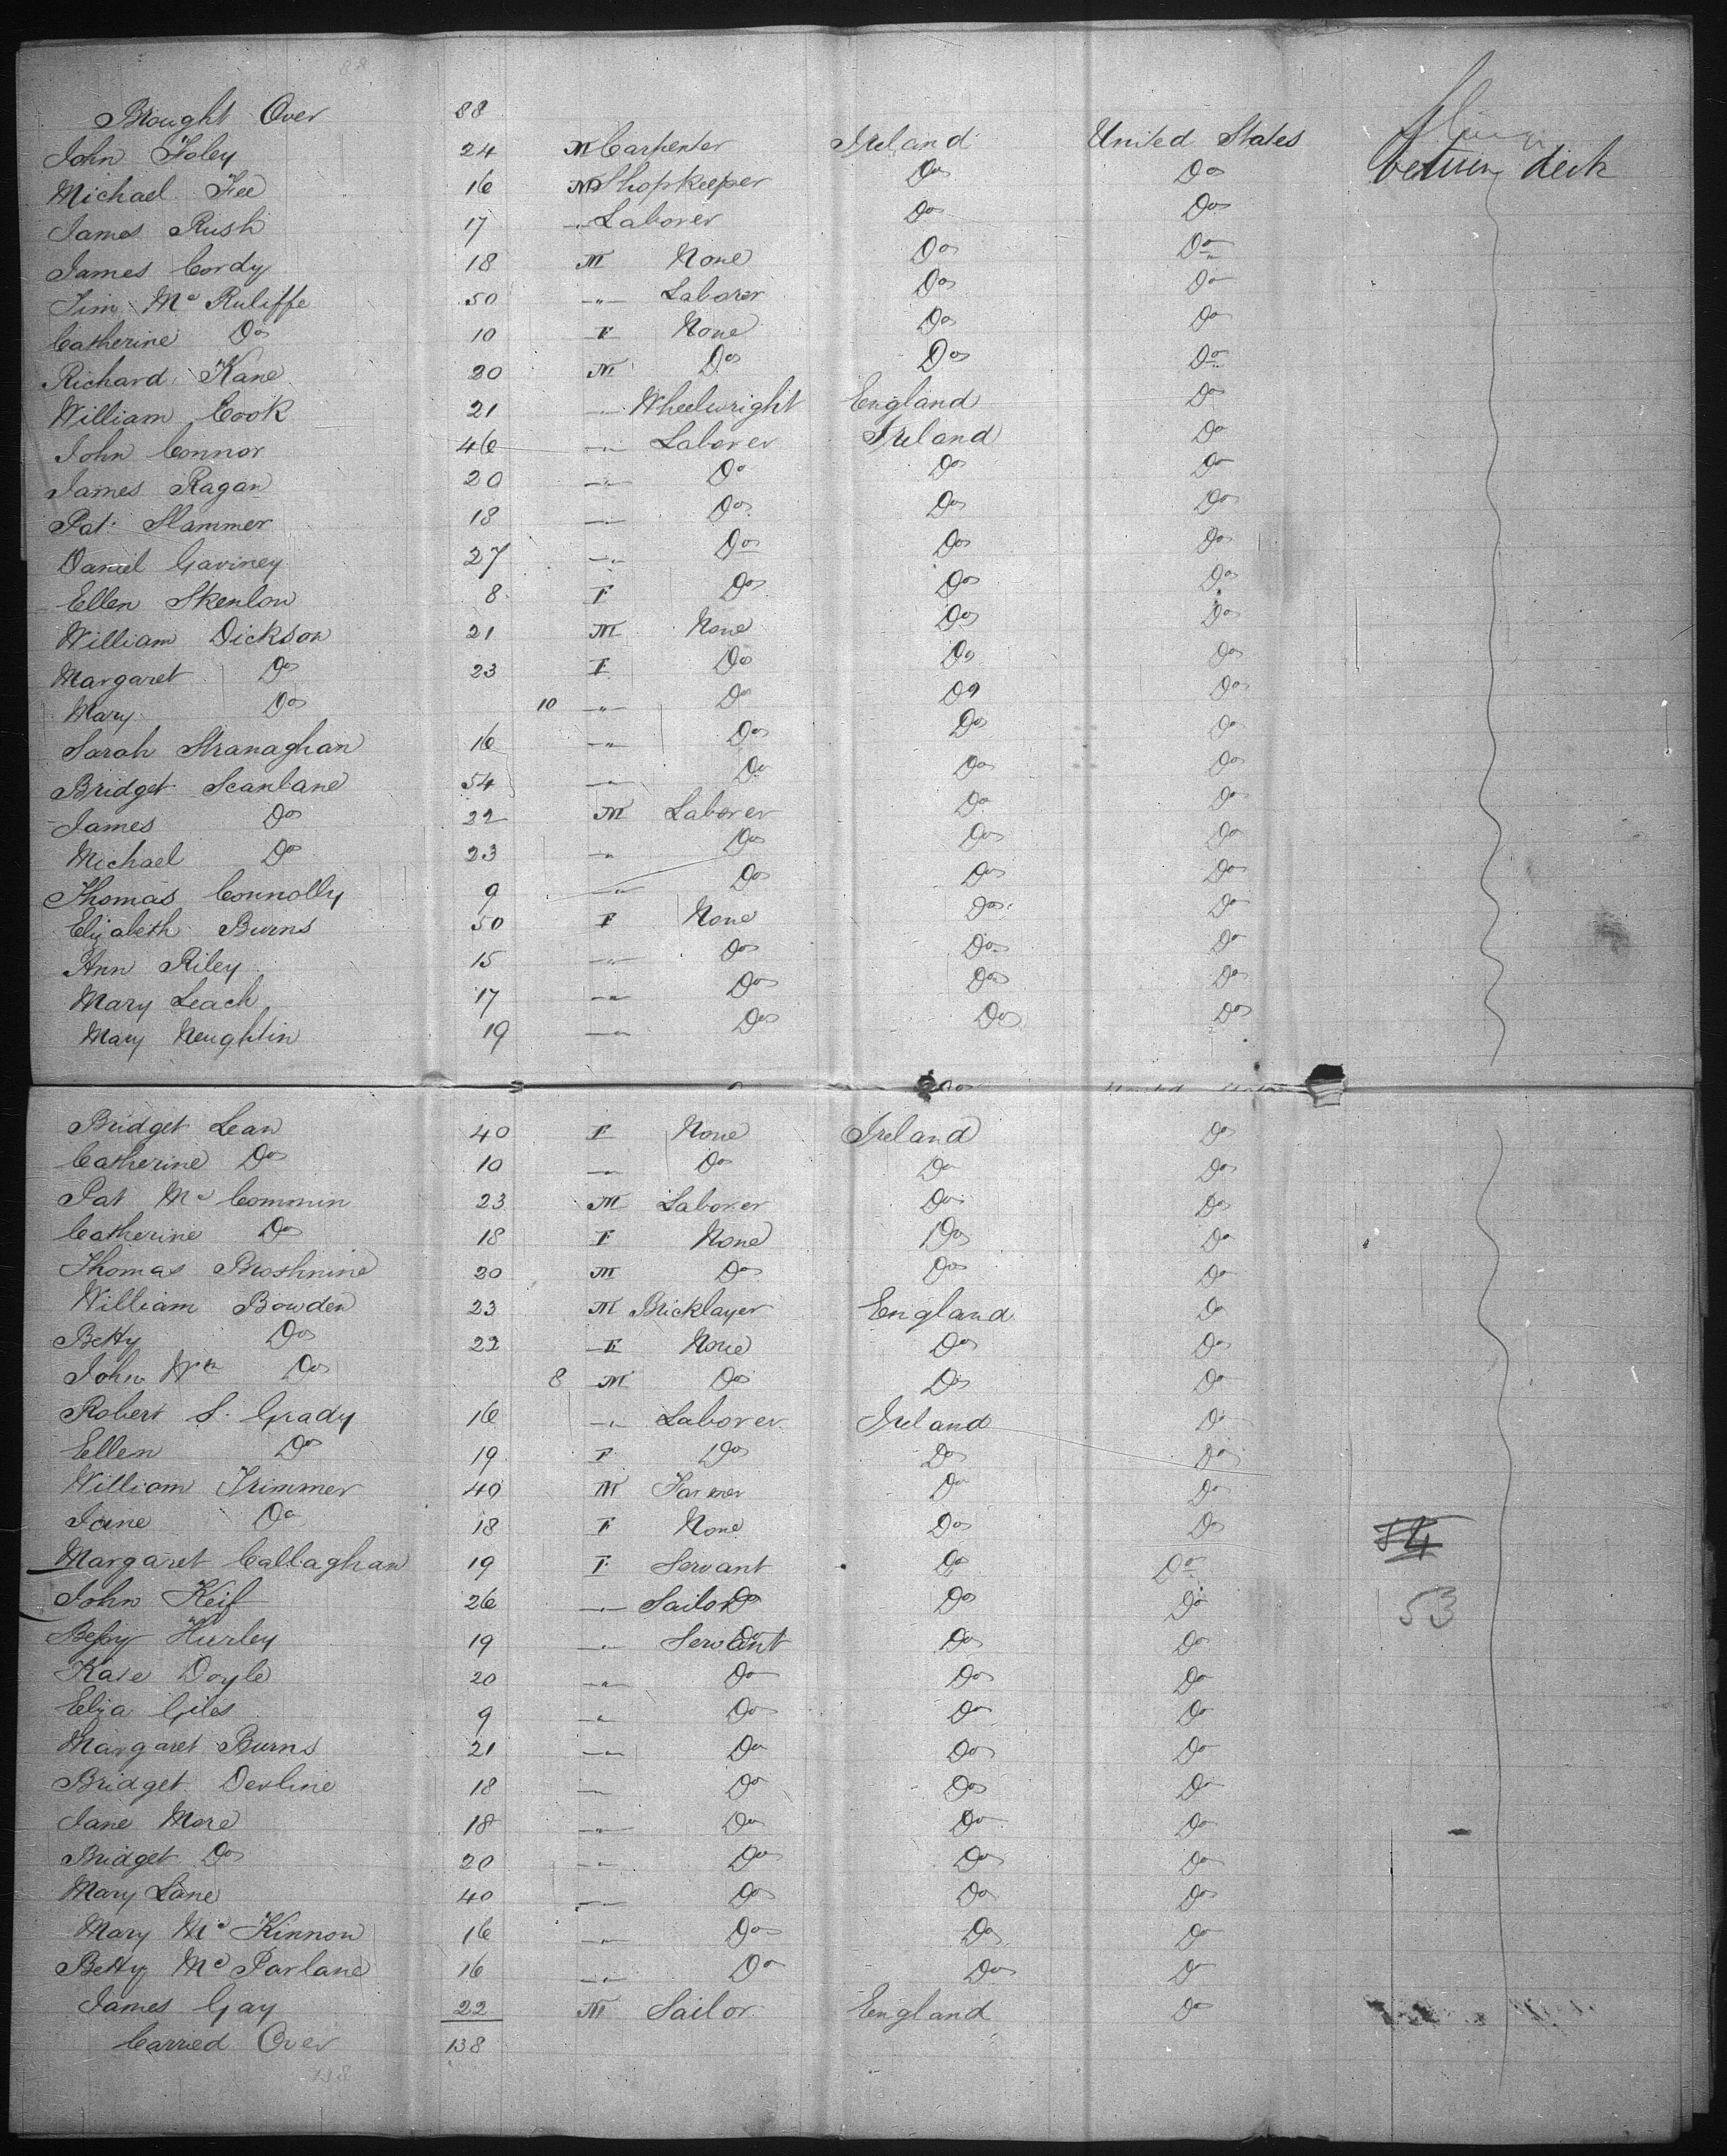 88
Brought Over 88
John Foley 24 M Carpenter Ireland United States
between deck
Michael Fee 16 M Shopkeeper Do Do
James Rush 17 " Laborer Do Do
James Cordy 18 M None Do Do
Tim Mc Ruliffe 50 " Laborer Do Do
Catherine Do 10 F None Do Do
Richard Kane 20 M Do Do Do
William Cook 21 " Wheelwright England Do
John Connor 46 " Laborer Ireland Do
James Ragan 20 " Do Do Do
Pat Slammer 18 " Do Do Do
Daniel Gaviney 27 " Do Do Do
Ellen Skenlon 8 F Do Do Do
William Dickson 21 M None Do Do
Margaret Do 23 F Do Do Do
Mary Do 10 " Do Do Do
Sarah Stranaghan 16 " Do Do Do
Bridget Scanlane 54 " Do Do Do
James Do 22 M Laborer Do Do
Michael Do 23 " Do Do Do
Thomas Connolly 9 " Do Do Do
Elizabeth Burns 50 F None Do Do
Ann Riley 15 " Do Do Do
Mary Leach 17 " Do Do Do
Mary Neughtin 19 " Do Do Do
Bridget Lean 40 F None Ireland Do
Catherine Do 10 " Do Do Do
Pat Mc Commin 23 M Laborer Do Do
Catherine Do 18 F None Do Do
Thomas Broshnine 20 M Do Do Do
William Bowden 23 M Bricklayer England Do
Betty Do 22 F None Do Do
John Wm Do 8 M Do Do Do
Robert S. Grady 16 " Laborer Ireland Do
Ellen Do 19 F Do Do Do
William Trimmer 40 M Farmer Do Do
Jane Do 18 F None Do Do 54
Margaret Callaghan 19 F Servant Do Do
John Keif 26 " Sailor Do Do 53
Bessy Hurley 19 " Servant Do Do
Kate Doyle 20 " Do Do Do
Eliza Giles 9 " Do Do Do
Margaret Burns 21 " Do Do Do
Bridget Devline 18 " Do Do Do
Jane More 18 " Do Do Do
Bridget Do 20 " Do Do Do
Mary Lane 40 " Do Do Do
Mary Mc Kinnon 16 " Do Do Do
Betty Mc Parlane 16 " Do Do Do
James Gay 22 M Sailor England Do
Carried Over 138
138